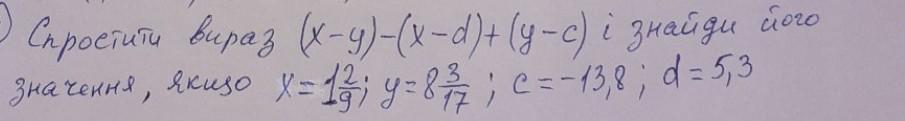 ) Спростити вираз (x-y)-(x-d)+(y-c) і знайди його
значення, якщо x=1 2/9; y=8 3/17; c=-13,8; d=5,3